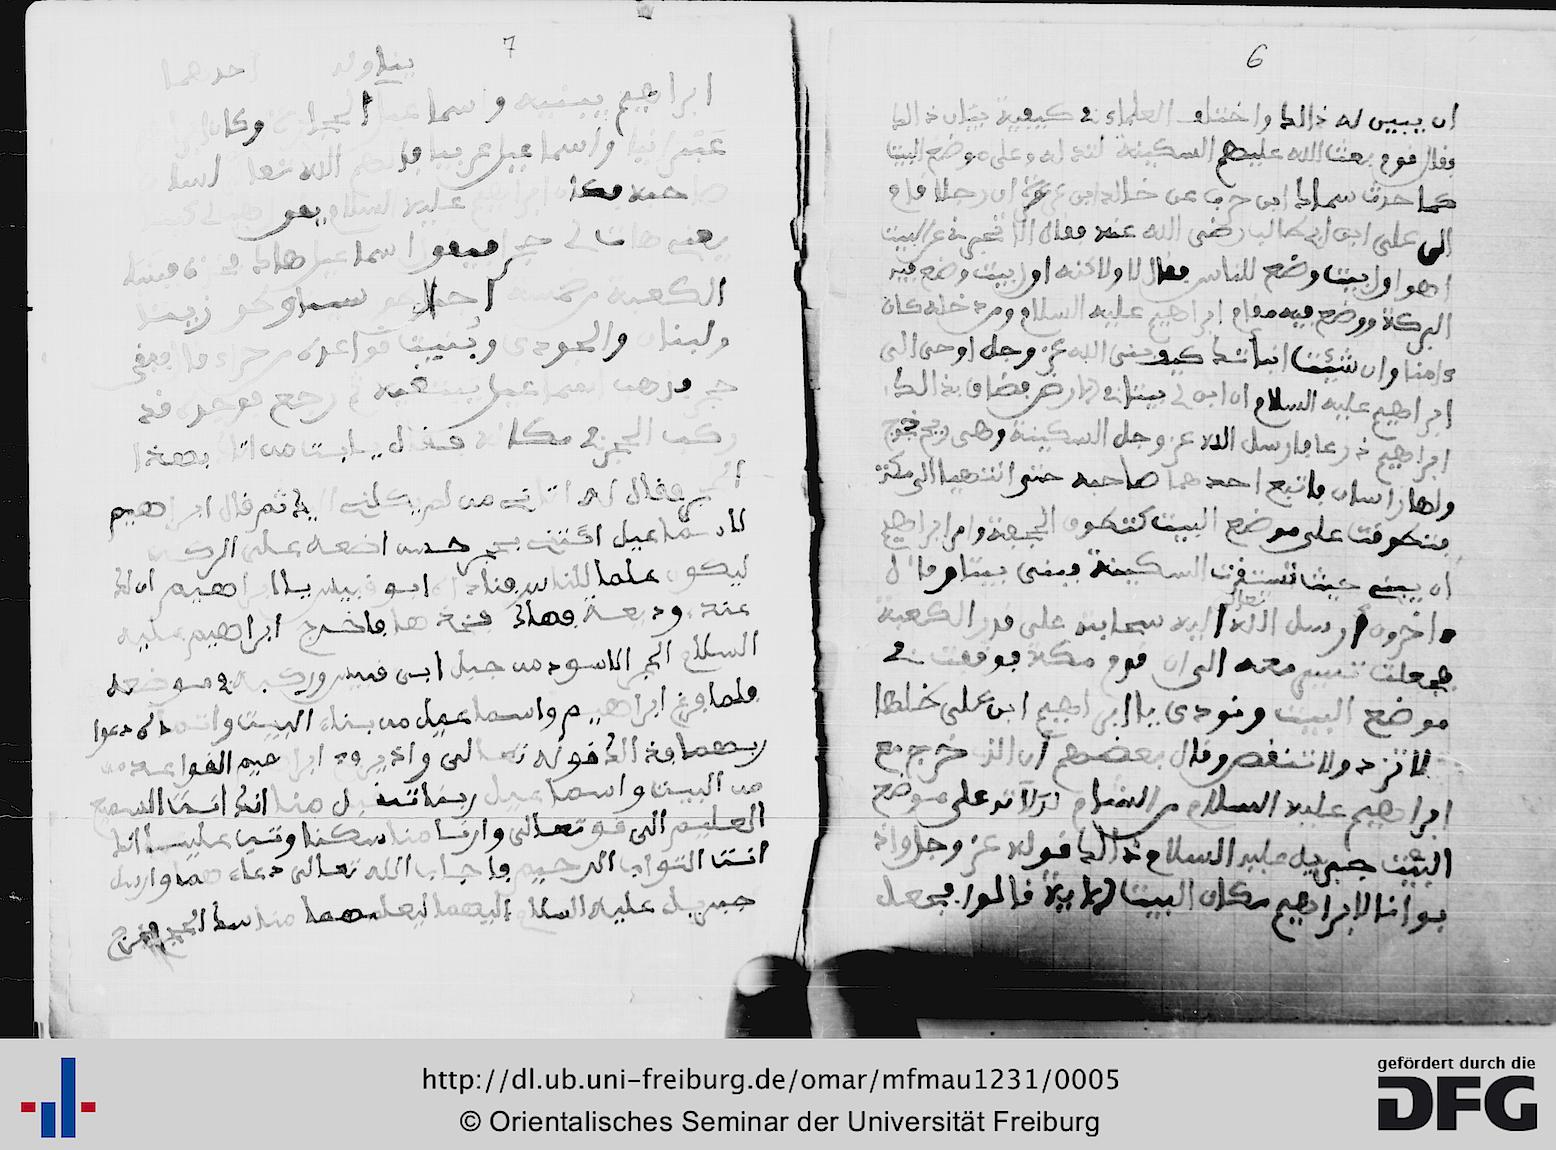 6
ان يبين له ذالك واختلف العلماء في كيفية بيان ذالك
فقال قوم بعث الله عليهم السكينة لتدله وعلى موضع البيت
كما حدث سماك ابن حرب عن خالد ابن عرعرة ان رجلا قام
الى على ابن ابي طالب رضي الله عنه فقال الا تخبرني عن البيت
اهو اول بيت وضع للناس فقال لا ولاكنه اول بيت وضع فيه
البركة ووضع فيه مقام ابراهيم عليه السلام ومن دخله كان
ءامنا وان شئت انباتك كيف بنى الله عز وجل اوحى الى
ابراهيم عليه السلام ان ابن لي بيتا في الارض فضاق بذالك
ابراهيم ذرعا فارسل الله عز وجل السكينة وهي ريح خجوج
ولها راسان فاتبع احدهما صاحبه حتى انتهيا الى مكة
فتطوقت على موضع البيت كتطوق الحجفة وامر ابراهيم
ان يبني حيث تستقرت السكينة فبنى بيتا وقال
ءاخرون ارسل الله تعالى اليه سحابة على قدر الكعبة
فجعلت تسير معه الى ان قدم مكة فوقفت في
موضع البيت ونودي يا ابراهيم ابن على ظلها
لا تزد ولا تنقص وقال بعضهم ان الذي خرج مع
ابراهيم عليه السلام من الشام لدلالته على موضع
البيت جبريل عليه السلام ذالك قوله عز وجل واذ
بوانا لابراهيم مكان البيت الاية قالوا فجعل
7
بناوله احدهما
ابراهيم يبنيه واسماعيل الحجارة وكان
عبرانيا واسماعيل عربيا فالهم الله تعلى لسا
صاحبه فكان ابراهيم عليه السلام يقول هب لي كيبا
يعني هات لي حجرا فيقول اسماعيل هاك فخذه فبنيا
الكعبة من خمسة اجبل
ولبنان والجودي وبنيت قواعده من حراء فلما بقي
حجر فذهب اسماعيل يبتغيه ثم رجع فوجده قد
ركب الحجر في مكانه فقال يا ابت من اتاك بهذا
الحجر فقال له اتاني من لم يكلني اليك ثم قال ابراهيم
لاسماعيل ائتني بحجر حسن اضعه على الركن
ليكون علما للناس فناداه ابو قبيس يا ابراهيم ان لك
عندي وديعة فهاك فخذها فاخرج ابراهيم عليه
السلام الحجر الاسود من جبل ابي قبيس وركبه في موضعه
فلما فرغ ابراهيم واسماعيل من بناء البيت واتما ذلك دعوا
ربهما فذالك قوله تعالى واذ يرفع ابراهيم القواعد من
من البيت واسماعيل ربنا تقبل منا انك انت السميع
العليم الى قوله تعالى وارنا مناسكنا وتب علينا انك
انت التواب الرحيم فاجاب الله تعالى دعاءهما وارسل
جبريل عليه السلام اليهما ليعلمهما مناسك الحج فخرج
http://dl.ub.uni-freiburg.de/omar/mfmau1231/0005
© Orientalisches Seminar der Universität Freiburg
gefördert durch die
DFG